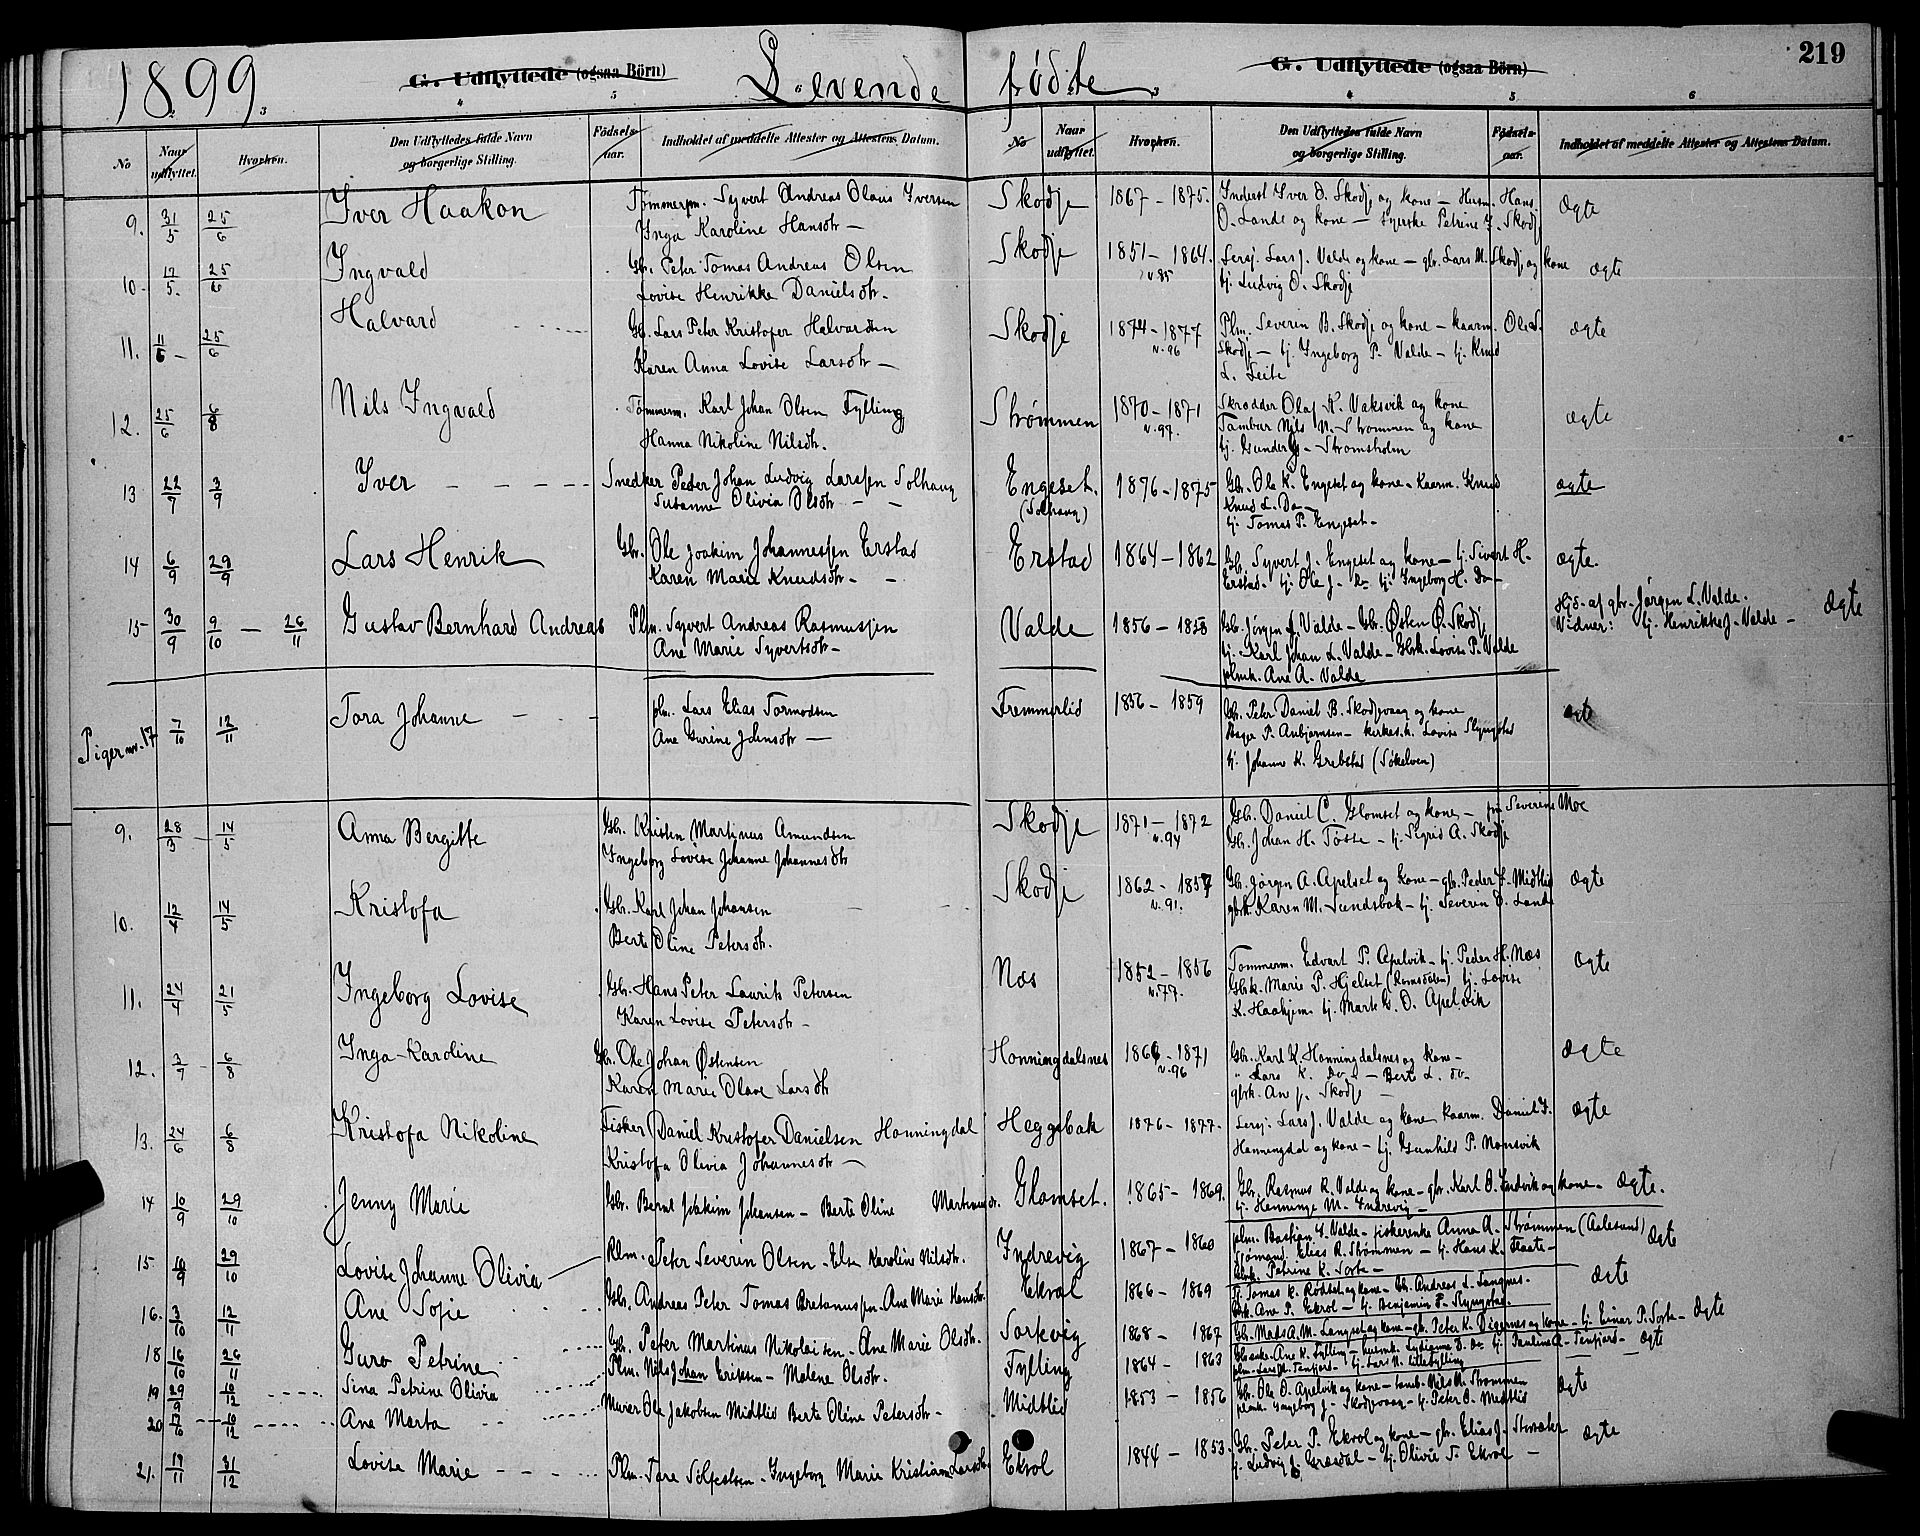 1899. G. Udflyttede (ogsaa Börn) Levende fødte G. Udflyttede (ogsaa Börn) 219
3 4 5 6 3 4 5 6
No Naar udflyttet. Hvorhen. Den Udflyttedes fulde Navn og borgerlige Stilling. Födsels-aar. Indholdet af meddelte Attester og Attestens Datum. No Naar udflyttet. Hvorhen. Den Udflyttedes fulde Navn og borgerlige Stilling. Födsels-aar. Indholdet af meddelte Attester og Attestens Datum.
9. 31/5 25/6 Iver Haakon Tømmerm. Syvert Andreas Olaus Iversen Skodje 1867 - 1875. Inderst Iver O. Skodj og kone - Husm. Hans Ægte
Inga Karoline Hansdtr - O. Lande og kone - Petrine I. Skodj
10. 17/5. 25/6 Ingvald Gbr. Peter Tomas Andreas Olsen Skodje 1851 - 1864. Sersj. Lars J. Valde og kone - gbr. Lars M. Skodj og kone ægte
Lovise Henrikke Danielsdtr. N.85 tj. Ludvig O. Skodj
11. 25/6 Halvard Gb. Lars Peter Kristofer Halvardsen Skodje 1874 - 1877 Plm. Severin B. Skodje og kone - kaarm. Ole S. ægte
Karen Anna Lovise Larsdtr - N.96 Skodje - tj. Ingeborg P. Valde - tj. Knud
L. Leite
12. 25/6 6/8 Nils Ingvald Tømmerm. Karl Johan Olsen Fylling Strømmen 1870 - 1871 Skrædder Olaf K. Vaksvik og kone ægte
Hanna Nikoline Nilsdtr. N.97. Tambur Nils N. Strømmen og kone
tj. Strømsholm
13 22/7 3/9 Iver Snedker Peder Johan Ludvig Larssen Solhaug Engeset. 1876 - 1875 Gbr. Ole K. Engeset og kone - Kaarm. Knud ægte
Susanne Olivia Olsdtr - (Solhaug) Knud L. Do -
tj. Tomas P. Engeset -
14 6/9 29/9 Lars Henrik Gbr. Ole Joakim Johannessen Erstad Erstad 1864 - 1862 Gb. Syvert J. Engeset og kone - tj. Sivert H. ægte.
Karen Marie Knudsdtr - Erstad - tj. Ole J. Do tj. Ingeborg H. Do -
15 30/9 9/10 - 26/11 Gustav Bernhard Andreas Plm. Syvert Andreas Rasmussen Valde 1856 - 1858 Gb. Jørgen L. Valde - Gbr. Østen Ø. Skodj Hjd. af gbr. Jørgen L. Valde. Ægte
Ane Marie Syvertsdtr - tj. Karl Johan L. Valde - Gbrk. Lovise P. Valde Vidner: tj. Henrikke J. Valde -
plmk. Ane A. Valde
Piger nr. 17 7/10 12/11 Tora Johanne plm. Lars Elias Tormodsen Fremmerlid 1856 - 1859 Gb. Peter Daniel B. Skodjevaag og kone ægte
Ane Gurine Johnsdtr - Bager P. Anbjørnsen - kirkes.k. Lovise Slyngstad
tj. Johanne K. Grebstad (Søkelven)
9. 28/3 - 14/5 Anna Bergitte Gb. Kristen Martinus Amundsen Skodje 1871 - 1872 Gb. Daniel C. Glomset og kone - Severine Moe
Ingeborg Lovise Johanne Johannesdtr N.94 Gb. Johan H. Tøsse - tj. Sigrid A. Skodje
10. 12/4 14/5 Kristofa Gbr. Karl Johan Johansen Skodj 1862 - 1857 Gb. Jørgen A. Apelset og Kone - gbr. Peder I. Midtlid Ægte
Berte Oline Petersdtr. N.91. gbrk. Karen M. Sundsbak - tj. Severin O. Lande
11. 24/4 21/5 Ingeborg Lovise Gbr. Hans Peter Laurits Petersen Næs 1852 - 1856 Tømmerm. Edvart P. Apelvik - tj. Peder H. Næs Ægte
Karen Lovise Petersdtr - N.77. Gbrk. Marie P. Hjelset (Romsdalen) tj. Lovise
K. Haahjem tj. Marte G. O. Apelvik
12. 3/7 - 6/8 Inga Karoline Gbr. Ole Johan Østensen Honningdalsnes 1866 - 1871 Gbr. Karl K. Honningdalsnes og kone - Ægte
Karen Marie Olave Larsdtr N.96 " Lars K. Do - Berte L. Do -
gbrk. Ane J. Skodje -
13. 24/6 6/8 Kristofa Nikoline Fisker Daniel Kristofer Danielsen Honningdal Heggebak 1876 - 1877. Sersj. Lars J. Valde og kone kaarm. Daniel I. Ægte
Kristofa Olivia Johannesdtr - Honningdal og kone - tj. Gunhild P. Monsvik
14 10/9 29/10 Jenny Marie Gbr. Bernt Joakim Johansen - Berte Oline Martinusdtr. Glomset. 1865 - 1869. Gb. Rasmus R. Valde og kone - gbr. Karl O. Indvik og kone - Ægte.
tj. Henninge M. Indrevig -
15 29/10 Lovise Johanne Olivia - Plm. Peter Severin Olsen - Else Karoline Nilsdtr. Indrevig 1867 - 1860 plm. Bastian L. Valde - fiskerenke Anna A. Strømmen (Aalesund) Ægte
Sjømand Elias R. Strømmen - tj. Hans K. Flaate -
Gbrk. Petrine K. Sorte -
16. 3/10 12/11 Ane Sofie Gbr. Andreas Peter Tomas Bretanussen - Ane Marie Hansdtr. Ekrol 1866 - 1869 Tj. Tomas K. Rødset og kone - Gb. Andreas L. Langnes. Ægte
Gbrk. Ane P. Ekrol - tj. Benjamin P. Slyngstad.
18 16/10 26/11 Guro Petrine Gb. Peter Martinus Nikolaisen - Ane Marie Olsdtr. Sorkvig 1868 - 1867 Gb. Mads A. M. Langset og kone - gb. Peter K. Digernes og kone - tj. Einar P. Sorte - Ægte
19 29/9 10/12 Sina Petrine Olivia Plm. Nils Johan Eriksen - Malene Olsdtr. Fylling 1864 - 1863 Ane K. Fylling - Lydianna D. Do tj. Pauline A. Tenfjord - ægte
plm. Lars M. Tenfjord - tj. Lars N. Littlefylling
20 17/10 - 10/12 Ane Marta Murer Ole Jakobsen Midtlid Berte Oline Petersdtr - Midtlid 1853 - 1856 Gb. Ole O. Apelvik og kone - tamb. Nils N. Strømmen Ægte
plmk. Ingeborg J. Skodjevaag - tj. Peter O. Midtlid
21. 17/11 31/12 Lovise Marie Plm. Tore Sølfestsen - Ingeborg Marie Kristianne Larsdtr Ekrol 1844 - 1853. Gb. Peter P. Ekrol og kone - gbr. Elias J. Ægte
tj. Ludvig J. Græsdal - tj. Olivie T. Ekrol -